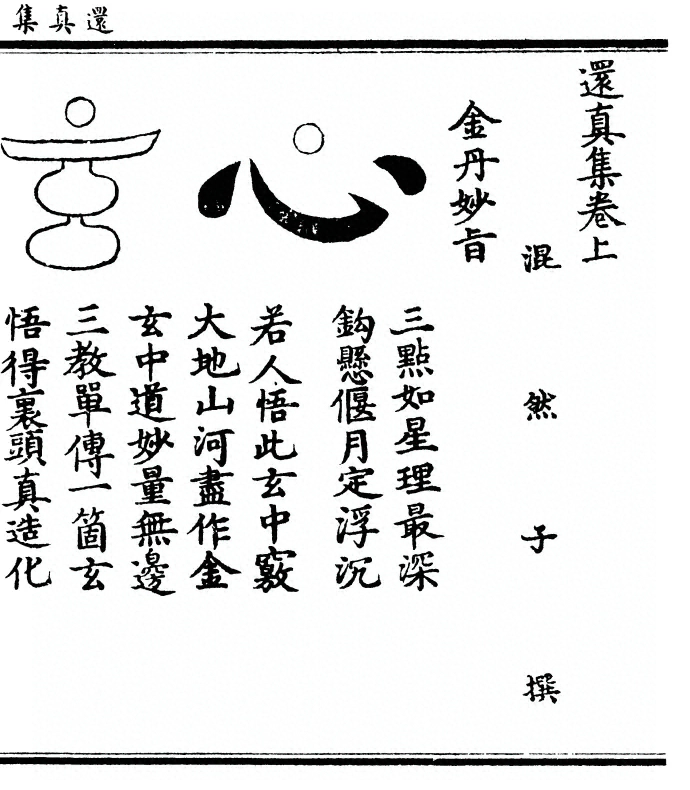 還真集
還真集卷上
混然子撰
金丹妙旨
心
三點如星理最深
鈎懸偃月定浮沉
若人悟此玄中竅
大地山河盡作金
玄
玄中道妙量無邊
三教單傳一箇玄
悟得裏頭真造化